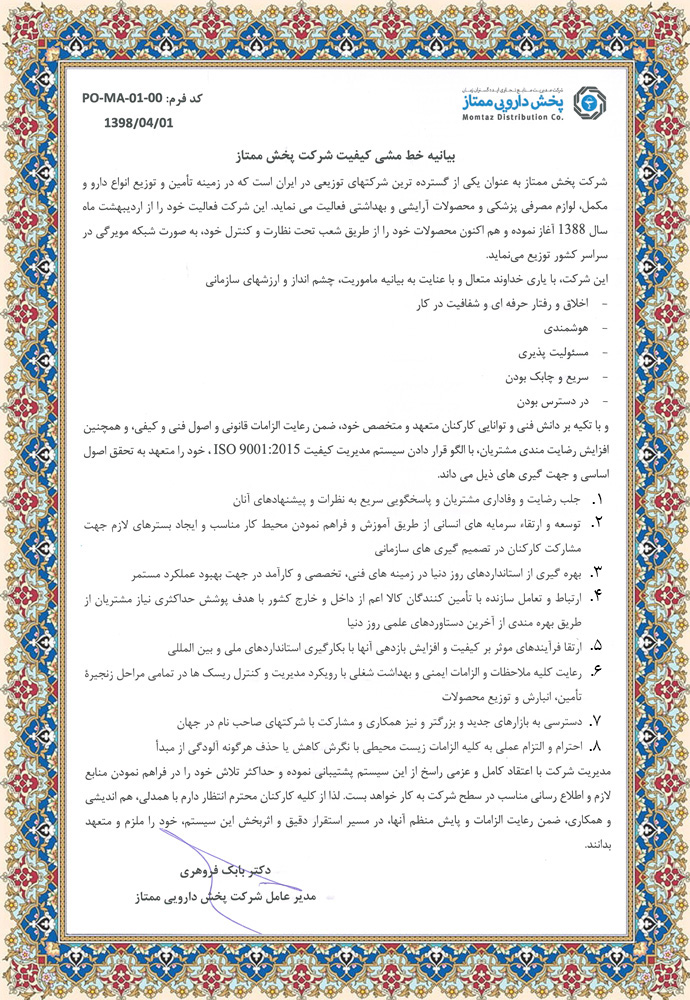 شرکت مدیریت منابع تجاری ایده گستران زمان
پخش دارویی ممتاز
Momtaz Distribution Co.
کد فرم: PO-MA-01-00
1398/04/01
بیانیه خط مشی کیفیت شرکت پخش ممتاز
شرکت پخش ممتاز به عنوان یکی از گسترده ترین شرکتهای توزیعی در ایران است که در زمینه تأمین و توزیع انواع دارو و
مکمل، لوازم مصرفی پزشکی و محصولات آرایشی و بهداشتی فعالیت می نماید. این شرکت فعالیت خود را از اردیبهشت ماه
سال 1388 آغاز نموده و هم اکنون محصولات خود را از طریق شعب تحت نظارت و کنترل خود، به صورت شبکه مویرگی در
سراسر کشور توزیع می‌نماید.
این شرکت، با یاری خداوند متعال و با عنایت به بیانیه ماموریت، چشم انداز و ارزشهای سازمانی
- اخلاق و رفتار حرفه ای و شفافیت در کار
- هوشمندی
- مسئولیت پذیری
- سریع و چابک بودن
- در دسترس بودن
و با تکیه بر دانش فنی و توانایی کارکنان متعهد و متخصص خود، ضمن رعایت الزامات قانونی و اصول فنی و کیفی، و همچنین
افزایش رضایت مندی مشتریان، با الگو قرار دادن سیستم مدیریت کیفیت ISO 9001:2015 ، خود را متعهد به تحقق اصول
اساسی و جهت گیری های ذیل می داند.
۱. جلب رضایت و وفاداری مشتریان و پاسخگویی سریع به نظرات و پیشنهادهای آنان
۲. توسعه و ارتقاء سرمایه های انسانی از طریق آموزش و فراهم نمودن محیط کار مناسب و ایجاد بسترهای لازم جهت
مشارکت کارکنان در تصمیم گیری های سازمانی
۳. بهره گیری از استانداردهای روز دنیا در زمینه های فنی، تخصصی و کارآمد در جهت بهبود عملکرد مستمر
۴. ارتباط و تعامل سازنده با تأمین کنندگان کالا اعم از داخل و خارج کشور با هدف پوشش حداکثری نیاز مشتریان از
طریق بهره مندی از آخرین دستاوردهای علمی روز دنیا
۵. ارتقا فرآیندهای موثر بر کیفیت و افزایش بازدهی آنها با بکارگیری استانداردهای ملی و بین المللی
۶. رعایت کلیه ملاحظات و الزامات ایمنی و بهداشت شغلی با رویکرد مدیریت و کنترل ریسک ها در تمامی مراحل زنجیرة
تأمین، انبارش و توزیع محصولات
۷. دسترسی به بازارهای جدید و بزرگتر و نیز همکاری و مشارکت با شرکتهای صاحب نام در جهان
۸. احترام و التزام عملی به کلیه الزامات زیست محیطی با نگرش کاهش یا حذف هرگونه آلودگی از مبدأ
مدیریت شرکت با اعتقاد کامل و عزمی راسخ از این سیستم پشتیبانی نموده و حداکثر تلاش خود را در فراهم نمودن منابع
لازم و اطلاع رسانی مناسب در سطح شرکت به کار خواهد بست. لذا از کلیه کارکنان محترم انتظار دارم با همدلی، هم اندیشی
و همکاری، ضمن رعایت الزامات و پایش منظم آنها، در مسیر استقرار دقیق و اثربخش این سیستم، خود را ملزم و متعهد
بدانند.
دکتر بابک فروهری
مدیر عامل شرکت پخش دارویی ممتاز